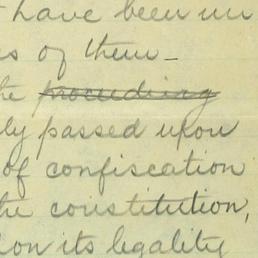 have been un
s of them-
he proceeding
ly passed upon
of confiscation
the constitution,
ion its legality